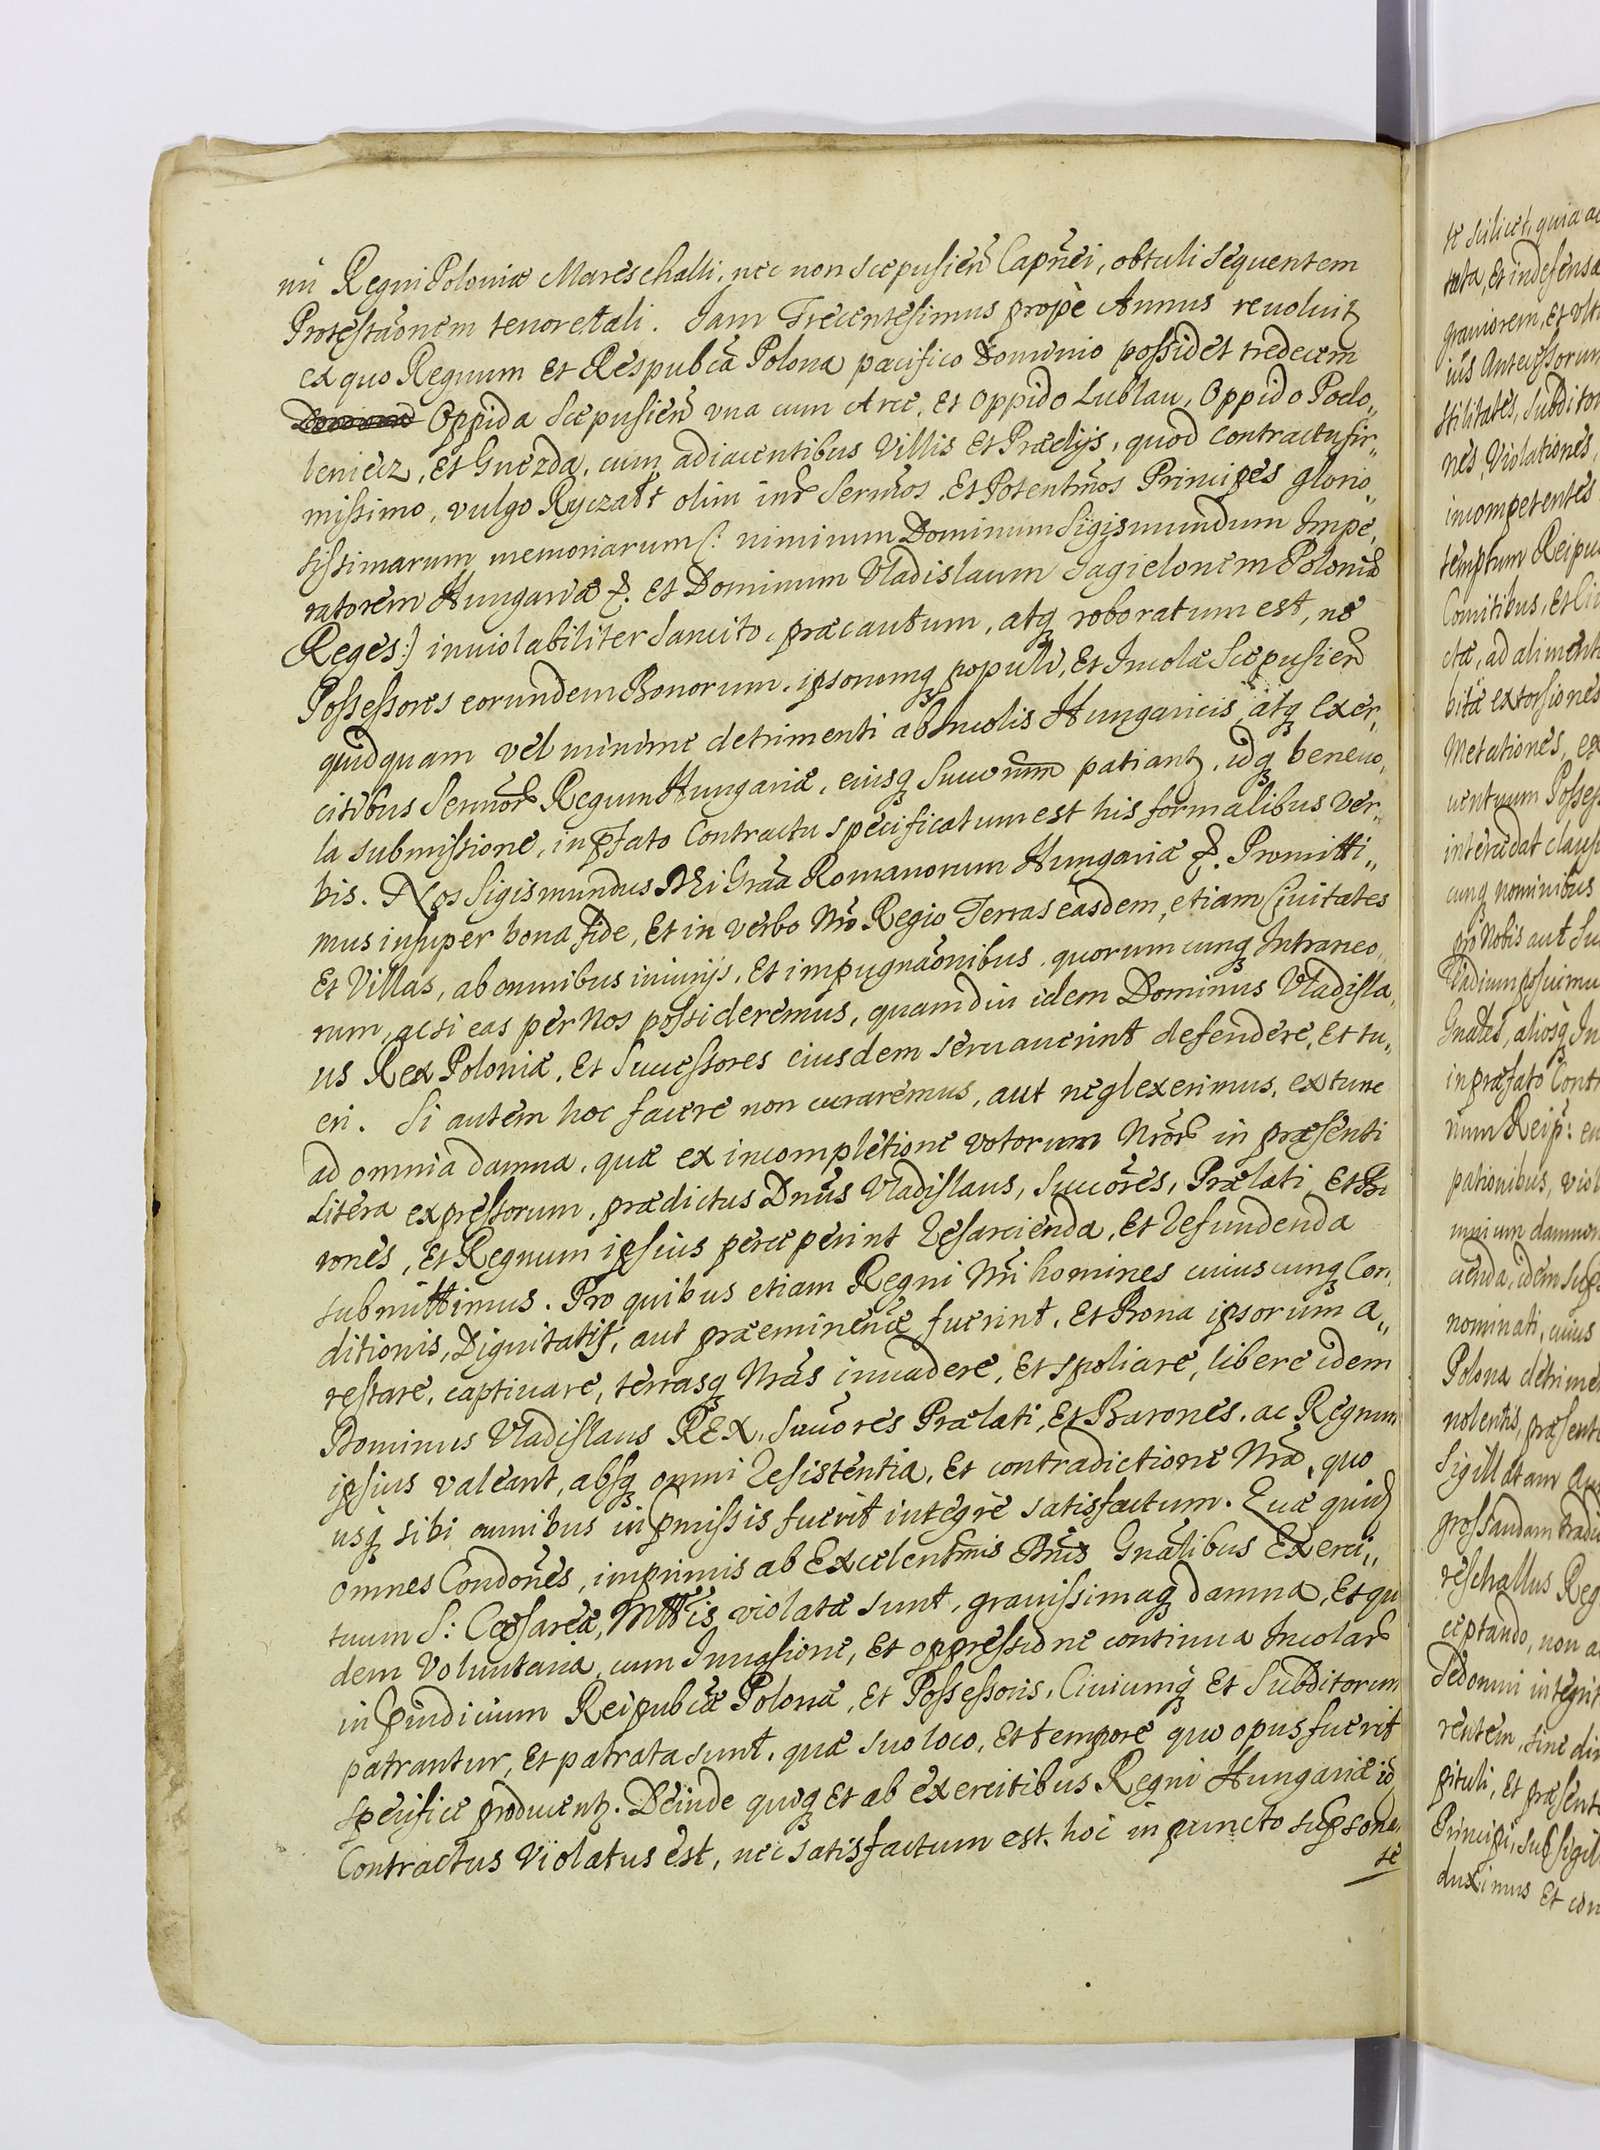 mi Regni Poloniæ Mareschalli, nec non Scepusien̄ Cap̄nei, obtuli sequentem
Protestāonem tenore tali. Jam Trecentesimus propè Annus reuoluitʒ
ex quo Regnum et Respubc̄a Polona pacifico Dominio possidet tredecem
Oppida Scepusien̄ vna cum Arce, et Oppido Lublau, Oppido Podo„
leniecz, et Gnezda, cum adiacentibus Villis et Prædijs, quod contractu fir„
missimo, vulgo Ryczałt olim inr̄ Serm̄os, et Potentm̄os Principes glorio„
sissimarum memoriarum (: nimirum Dominum Sigismundum Impe„
ratorem Hungariæ &. et Dominum Vladislaum Jagielonem Poloniæ
Reges:) inuiolabiliter sancito, præcautum, atqʒ roboratum est, ne
Possessores eorundem Bonorum, ipsorumqʒ populi, et Incolæ Scepusien̄
quidquam vel minime detrimenti ab Incolis Hungaricis, atqʒ Exer„
citibus Serm̄or̄ Regum Hungariæ, eiusqʒ Succ̄orum patiantʒ, idqʒ beneuo„
la submissione, in p̄fato Contractu specificatum est his formalibus ver„
bis. Nos Sigismundus Dei Grāa Romanorum Hungariæ &. Promitti„
mus insuper bona fide, et in verbo Nr̄o Regio Terras easdem, etiam Ciuitates
et Villas, ab omnibus iniurijs, et impugnāonibus, quorumcunqʒ Intraneo„
rum, ac si eas per Nos possideremus, quamdiu idem Dominus Vladisla„
us Rex Poloniæ, et Successores eiusdem seruauerint defendere, et tu„
eri. Si autem hoc facere non curaremus, aut neglexerimus, ex tunc
ad omnia damna, quæ ex incompletione votorum Nr̄or̄ in præsenti
Litera expressorum, prædictus Dn̄us Vladislaus, Succ̄ores, Prælati, et Ba
rones, et Regnum ipsius perceperint resarcienda, et refundenda
submittimus. Pro quibus etiam Regni Nr̄i homines cuiuscunqʒ Con„
ditionis, Dignitatis, aut præeminen̄æ fuerint, et Bona ipsorum a„
restare, captiuare, terrasqʒ Nr̄as inuadere, et spoliare, libere idem
Dominus Vladislaus REX, Succ̄ores Prælati, et Barones, ac Regnum
ipsius valeant, absqʒ omni resistentia, et contradictione Nr̄a, quo
usqʒ sibi omnibus in p̄missis fuerit integre satisfactum. Quæ quidʒ
omnes Condōnes, imprimis ab Excelentm̄is Dn̄is Gn̄alibus Exerci„
tuum S: Cæsareæ Mttis violatæ sunt, grauissimaqʒ damna, et qui
dem Voluntaria, cum Inuasione, et oppressione continua Incolar̄
in p̄iudicium Reipubc̄æ Polonæ, et Possessoris, Ciuiumqʒ et Subditorum
patrantur, et patrata sunt, quæ suo loco, et tempore quo opus fuerit
specifice producentʒ. Deinde quoqʒ et ab exercitibus Regni Hungariæ id
Contractus Violatus est, nec satisfactum est, hoc in puncto sup̄sona„
te
te scilicet, quia ac
tuta, et indefensa
grauiorem, et vlt
ius Antecessorum
stilitates, subditor
nes, Violationes,
incompetentes
temptum Reipu
Comitibus, et Ci
ctæ, ad aliment
bitæ extorsiones
Metationes, ex
uentuum Posses
intercedat clausu
cunqʒ nominibus
pro Nobis aut Su
Vadium posuimu
Gnates, aliosqʒ In
in præfato Contr
num Reip: eu
pationibus, viol
mnium damnor
cienda, idem sup
nominati, cuius
Polona detrime
nolentis, præsent
Sigillatam
grossandam tradi
reschallus Reg
ceptando, non a
Sed omni integrit
rentem, sine di
pituli, et præsent
Principi, sub sigil
duximus et con